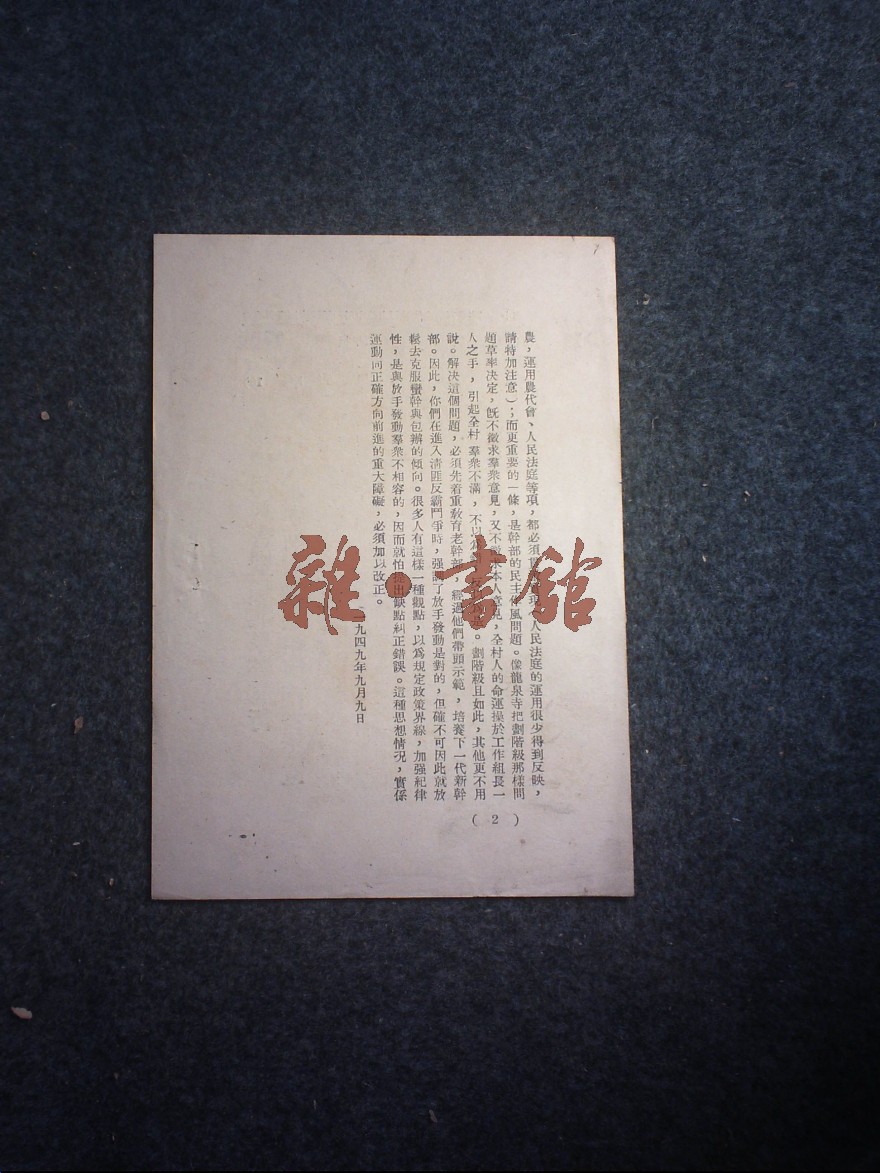 農，運用農代會、人民法庭等項，都必須　　　　人民法庭的運用很少得到反映，
請特加注意）；而更重要的一條，是幹部的民主作風問題。像龍泉寺把劃階級那樣問
題草率决定，旣不徵求羣衆意見，又不徵求本人意見，全村人的命運操於工作組長一
人之手，引起全村羣衆不滿，不以　　　　。劃階級且如此，其他更不用
說。解决這個問題，必須先着重敎育老幹部，經過他們帶頭示範，培養下一代新幹
部。因此，你們在進入淸匪反霸鬥爭時，强調了放手發動是對的，但確不可因此就放
鬆去克服蠻幹與包辦的傾向。很多人有這樣一種觀點，以爲規定政策界線，加强紀律
性，是與放手發動羣衆不相容的，因而就怕提出缺點糾正錯誤。這種思想情况，實係
運動向正確方向前進的重大障礙，必須加以改正。
一九四九年九月九日
( 2 )
雜·書館